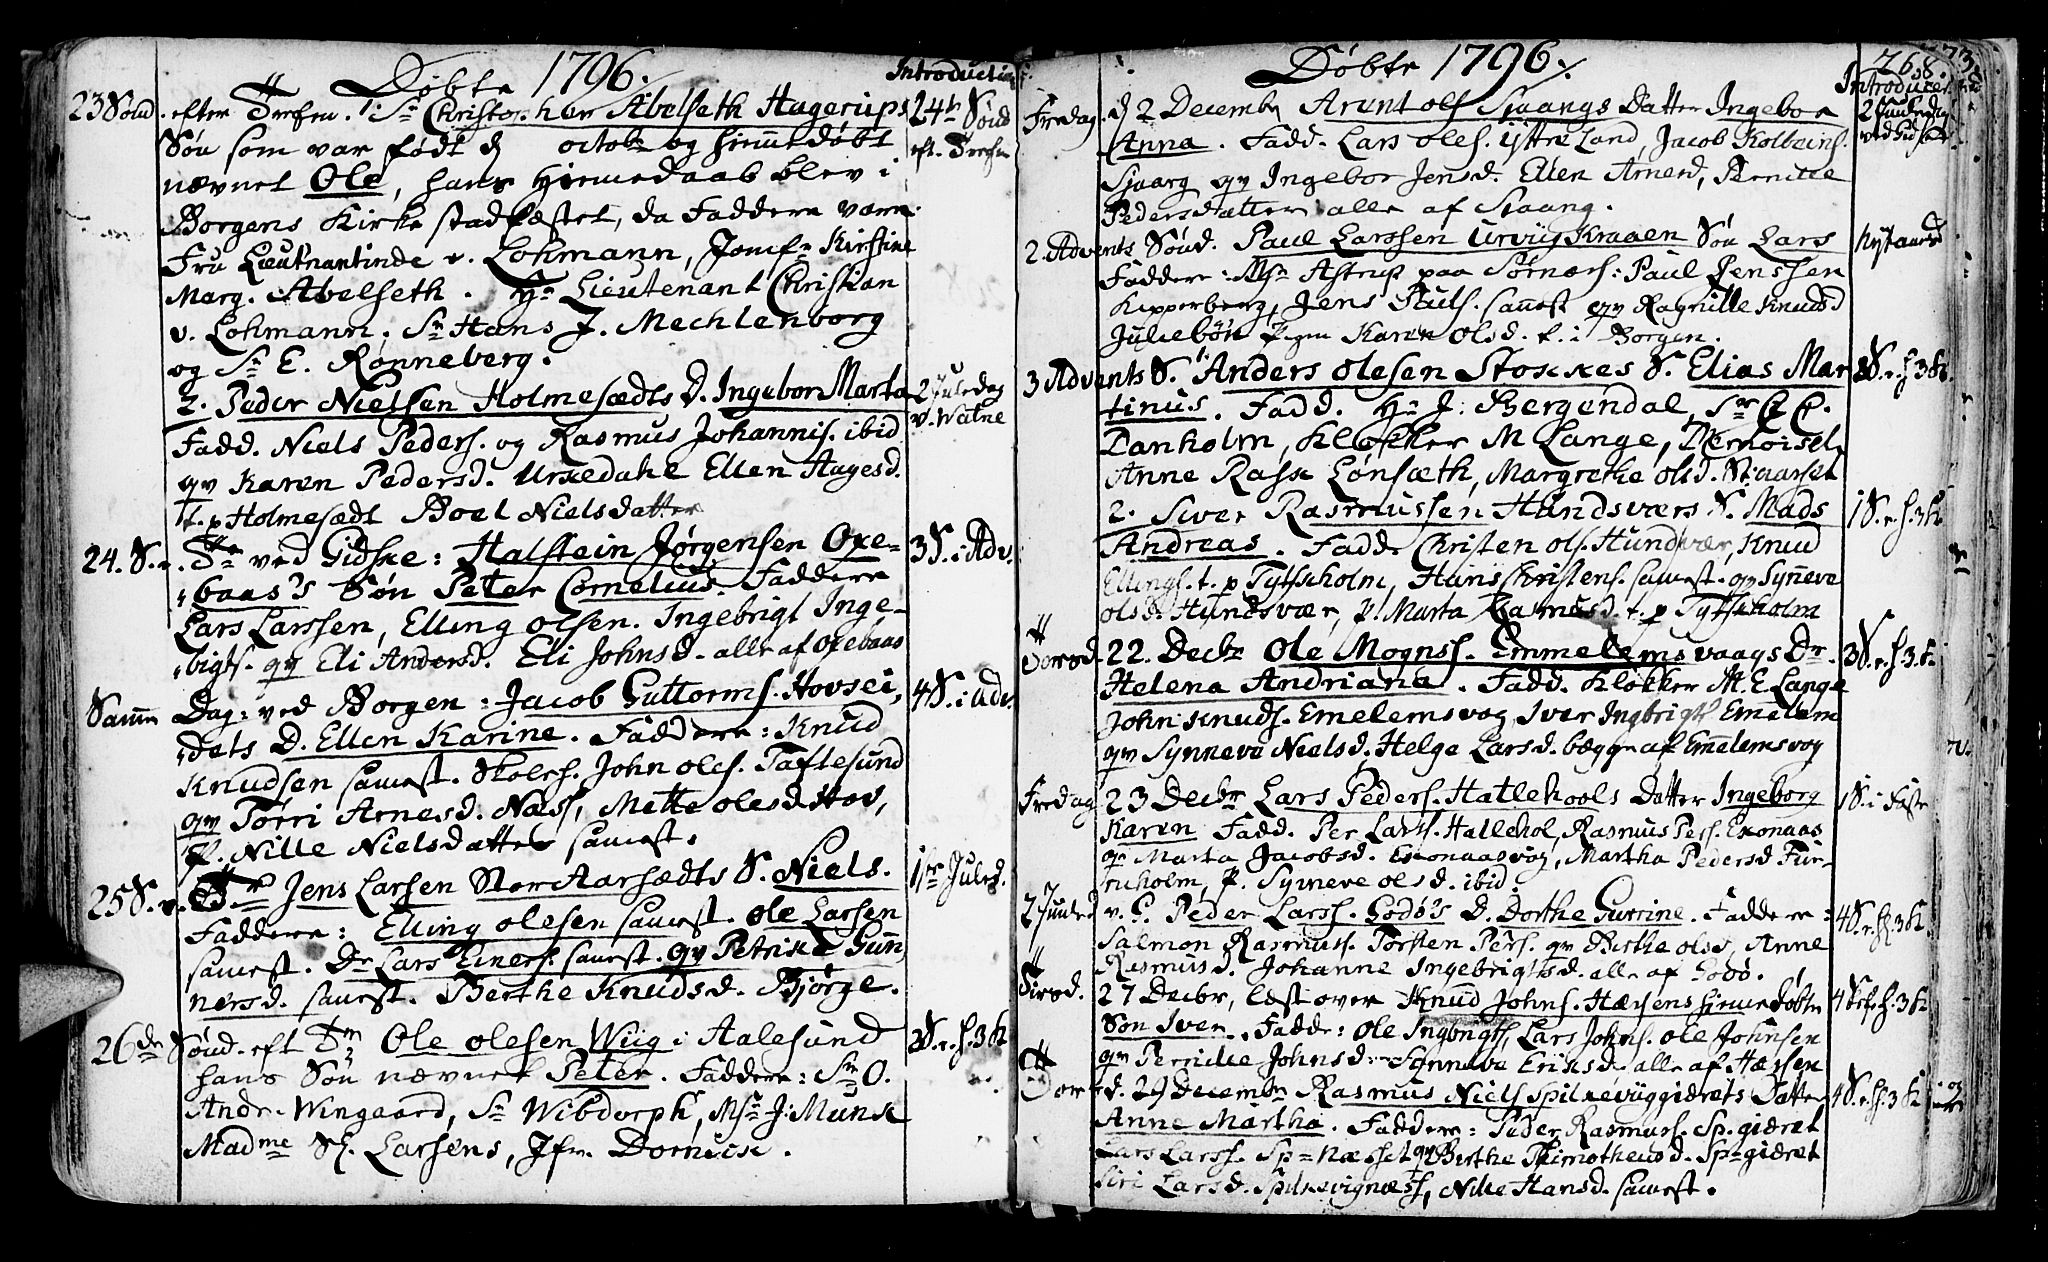 Døbte 1796.
Introductio
23 Sønd. efter Trefen. 1. Sr Christopher Abelseth Hagerups
Søn som var født d octob og hiemedøbt
nævnet Ole, hans Hiemedaab blev i
Borgens Kirke stadfæstet, da Faddere vare
Fru Lieutnantinde v. Lohmann, Jomfr Kirstine
Marg. Abelseth. Hr Lieutenant Christian
v. Lohmann, Sr Hans J. Mechlenborg
og Sr E. Rønneberg.
24de Sønd
eft. Trefen
2. Peder Nielsen Holmesædts D. Ingebor Marta
Fadd. Niels Peders. og Rasmus Johannis. ibid
qv Karen Pedersd. Urkedahl Ellen Hagesd.
t. p Holmesædt Boel Nielsdatter
2 Juledag
v. Watne
24. S. e. Tr ved Gidske: Halstein Jørgensen Oxe-
baas's Søn Peter Cornelius. Faddere
Lars Larssen, Elling olsen. Ingebrigt Inge-
brigts. qv Eli Andersd. Eli Johnsd. alle af Oxebaas
3 S. i Adv.
Samme Dag: ved Borgen: Jacob Guttorms. Hovsei,
dets D. Ellen Karine. Faddere: Knud
Knudsen samest. Skoleh. John oles. Taftesund
qv Torri Arnesd. Næss, Mette olesd
P. Nille Nielsdatter samest.
4 S. i adv.
25 S. e. Tr Jens Larsen Stor Aarsædts S. Niels.
Faddere: Elling olesen samest. ole Larsen
samest. Dr Lars Einers. samest. qv Petrike Gun-
nersd. samest. Berthe Knudsd. Bjørge.
1ste Juled.
26de Sønd. eft Tr Ole olesen Wiig i Aalesund
hans Søn nævnet Peter. Faddere: Sr O.
Andr. Wingaard, Sr Wibdorph, Msr J: Munk
Madme Larsens, Jfr. Dornick.
2 S. e. h. 3 K.
Døbte 1796.
268.
Introduct.
Fredag. d 2 Decembr Arunt ols Sjaangs Datter Ingebor
Anna. Fadd. Lars oles. ystre Land, Jacob Kolbeins.
Sjaang qv Ingebor Jensd. Ellen Arnesd, Pernille
Pedersdatter alle af Sjaang.
2 Juledag
ved Gidske
2. Advents Sønd. Paul Larssen Urviig Kraaen Søn Lars
Faddere: Msr Astrup paa Sørnæs: Paul Jenssen
Kipperberg, Jens Pauls. samest qv Ragnille Knudsd
Juliebøn P. Karen Olsd. t. i Borgen.
Nytaarsd
3 Advents S. Anders olesen Stokkes S. Elias Mar
tinus. Fadd. Hr J. Bergendal, Sr C C.
Danholm, Klokker M Lange, Demoisel
Anne Lønsæth, Margrethe olsd. Staarset
2 S. e. h 3 K.
2. Siver Rasmussen Hundsværs S. Mads
Andreas. Fadd. Christen ols. Hundsvær, Knud
Ellings. t. p Tytsholm, Hans Christens. samest. qv Synneve
olsd. Hundsvær, P. Marta Rasmusd. t. p Tytsholm
1 S. e. h. 3 K.
Torsd. 22. Decbr Ole Mognss. Emmelemsvaags Dr.
Helena Andriana. Fadd. Klokker M. E. Lange
John Knuds. Emelemsvog, Iver Ingbrigts Emelem
qv Synneve Nielsd, Helge Larsd. begge af Emelemsvog
3 S. e. h. 3 K.
Fredag 23 Decbr Lars Peders. Hatlehools Datter Ingeborg
Karen Fadd. Per Larss. Hatlehol, Rasmus Pers. Exonaas
qv Marta Jacobsd. Exonaasvog, Martha Pedersd Fur-
ruholm, P. Synneve olsd. ibid.
1 S. i Faste
2 Juled v. G. Peder Larss. Godø's D. Dorthe Gurrine. Faddere:
Salmon Rasmuss. Torsten Pers. qv Berthe olsd, Anne
Rasmusd. Johanne Ingebrigtsd. alle af Godø.
4 S. e. h. 3 K.
Tirsd. 27 Decbr, læst over Knud Johns. Hæssens hiemedøbte
Søn Iver. Fadde: Ole Ingbrigts, Lars Johns. ole Johnsen
qv Pernille Johnsd. Synneve Eriksd. alle af Hæssen
4 S. e. h. 3 K.
Torsd. 29 Decembr Rasmus Niels Spilkeviiggiærets Datter
Anne Martha. Faddere: Peder Rasmuss. Sp. giæret
Lars Larss. Sp= næsset qv Berthe Thimotheusd. Sp= giæret
Siri Larsd. Spilkevignæss, Nille Hansd. samest.
4 S. e. h. 3 K